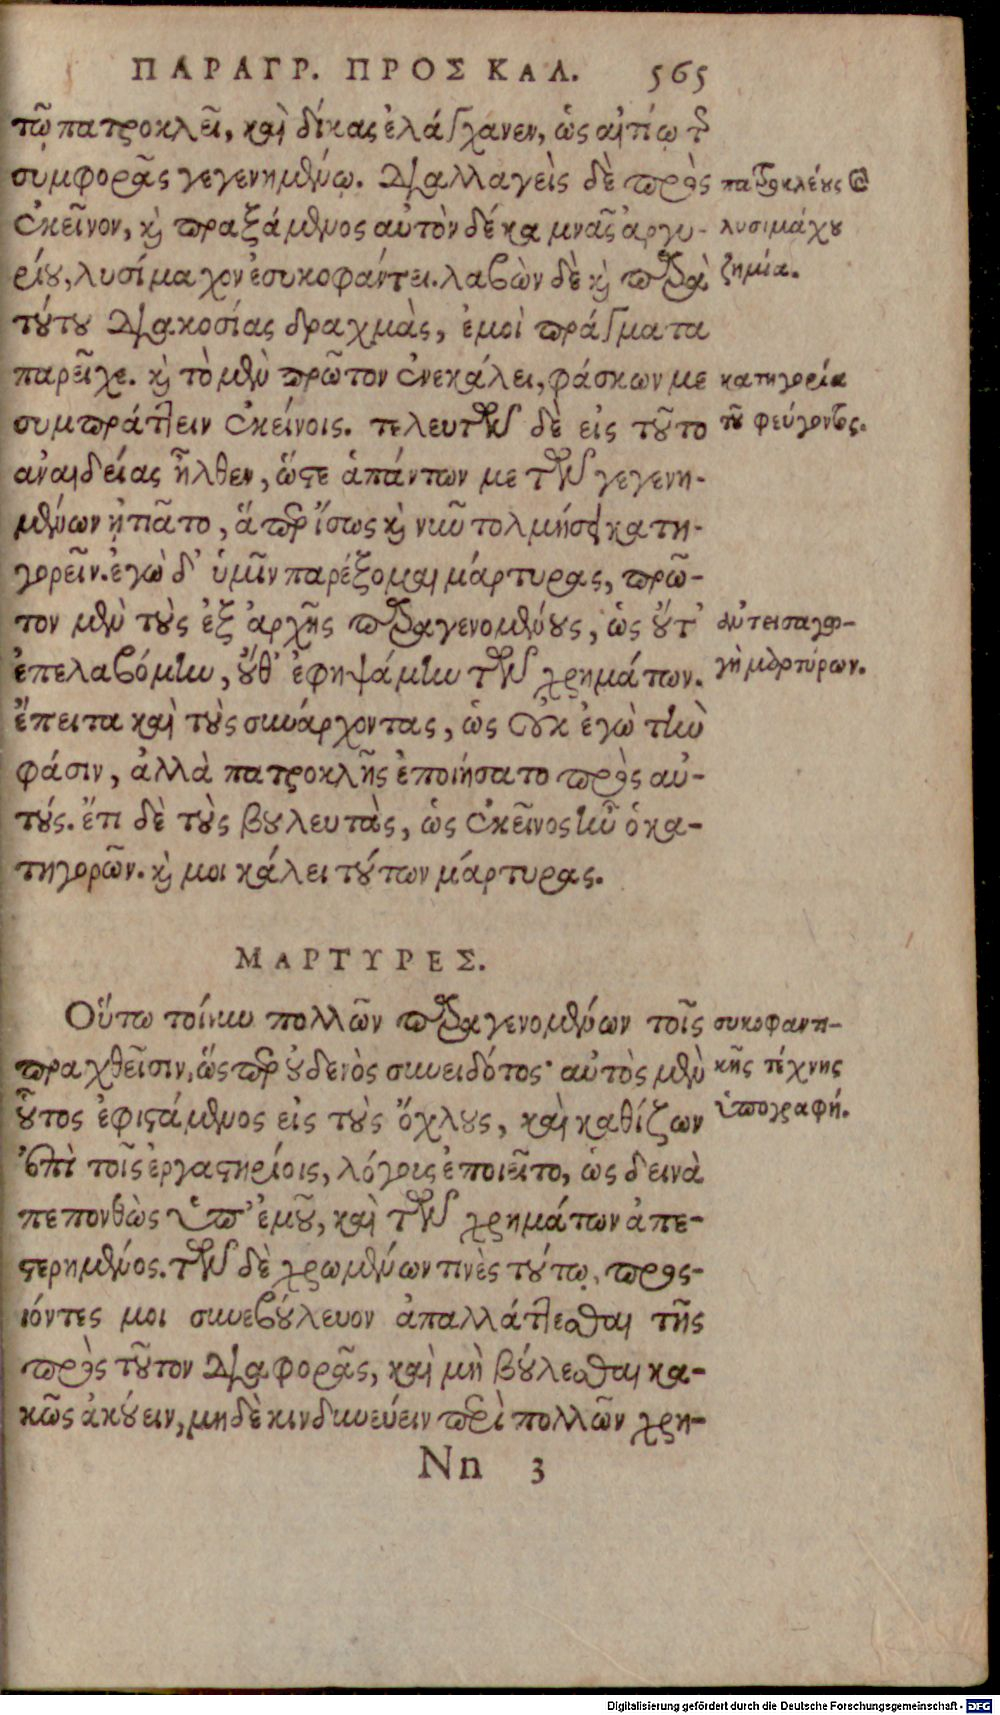 ΠΑΡΑΓΡ. ΠΡΟΣ ΚΑΛ. 565
τῷ πατροκλεῖ, καὶ δίκας ἐλάγχανεν, ὡς αἰτίῳ τ῀
συμφορᾶς γεγενημένῳ. διαλλαγεὶς δὲ πρὸς
ἐκεῖνον, καὶ πραξάμενος αὐτὸν δέκα μνᾶς ἀργυ-
ρίου, λυσίμαχον ἐσυκοφάντει. λαβὼν δὲ καὶ παρὰ
τούτου διακοσίας δραχμὰς, ἐμοὶ πράγματα
παρεῖχε. καὶ τὸ μὲν πρῶτον ἐνεκάλει, φάσκων με
συμπράττειν ἐκείνοις. τελευτῶν δὲ εἰς τοῦτο
ἀναιδείας ἦλθεν, ὥστε ἁπάντων με τῶν γεγενη-
μένων ᾐτιᾶτο, ἅπερ ἴσως καὶ νῦν τολμήσει κατη-
γορεῖν. ἐγὼ δ' ὑμῖν παρέξομαι μάρτυρας, πρῶ-
τον μὲν τοὺς ἐξ ἀρχῆς παραγενομένους, ὡς οὔτ'
ἐπελαβόμην, οὔθ' ἐφηψάμην τῶν χρημάτων.
ἔπειτα καὶ τοὺς συνάρχοντας, ὡς οὐκ ἐγὼ τὴν
φάσιν, ἀλλὰ πατροκλῆς ἐποιήσατο πρὸς αὐ-
τούς. ἔτι δὲ τοὺς βουλευτὰς, ὡς ἐκεῖνος ἦν ὁ κα-
τηγορῶν. καὶ μοι κάλει τούτων μάρτυρας.
ΜΑΡΤΥΡΕΣ.
Οὕτω τοίνυν πολλῶν παραγενομένων τοῖς
πραχθεῖσιν, ὥσπερ οὐδενὸς συνειδότος· αὐτὸς μὲν
οὗτος ἐφιστάμενος εἰς τοὺς ὄχλους, καὶ καθίζων
ἐπὶ τοῖς ἐργαστηρίοις, λόγοις ἐποιεῖτο, ὡς δεινὰ
πεπονθὼς ὑπ' ἐμοῦ, καὶ τῶν χρημάτων ἀπε-
στερημένος. τῶν δὲ χρωμένων τινὲς τούτῳ, προς-
ιόντες μοι συνεβούλευον ἀπαλλάττεσθαι τῆς
πρὸς τοῦτον διαφορᾶς, καὶ μὴ βούλεσθαι κα-
κῶς ἀκούειν, μηδὲ κινδυνεύειν περὶ πολλῶν χρη-
Nn 3
πατροκλέους καὶ
λυσιμάχου
ζημία.
κατηγορία
τοῦ φεύγοντος.
ἀντεισαγω-
γὴ μαρτύρων.
συκοφαντι-
κῆς τέχνης
ὑπογραφή.
Digitalisierung gefördert durch die Deutsche Forschungsgemeinschaft - DFG